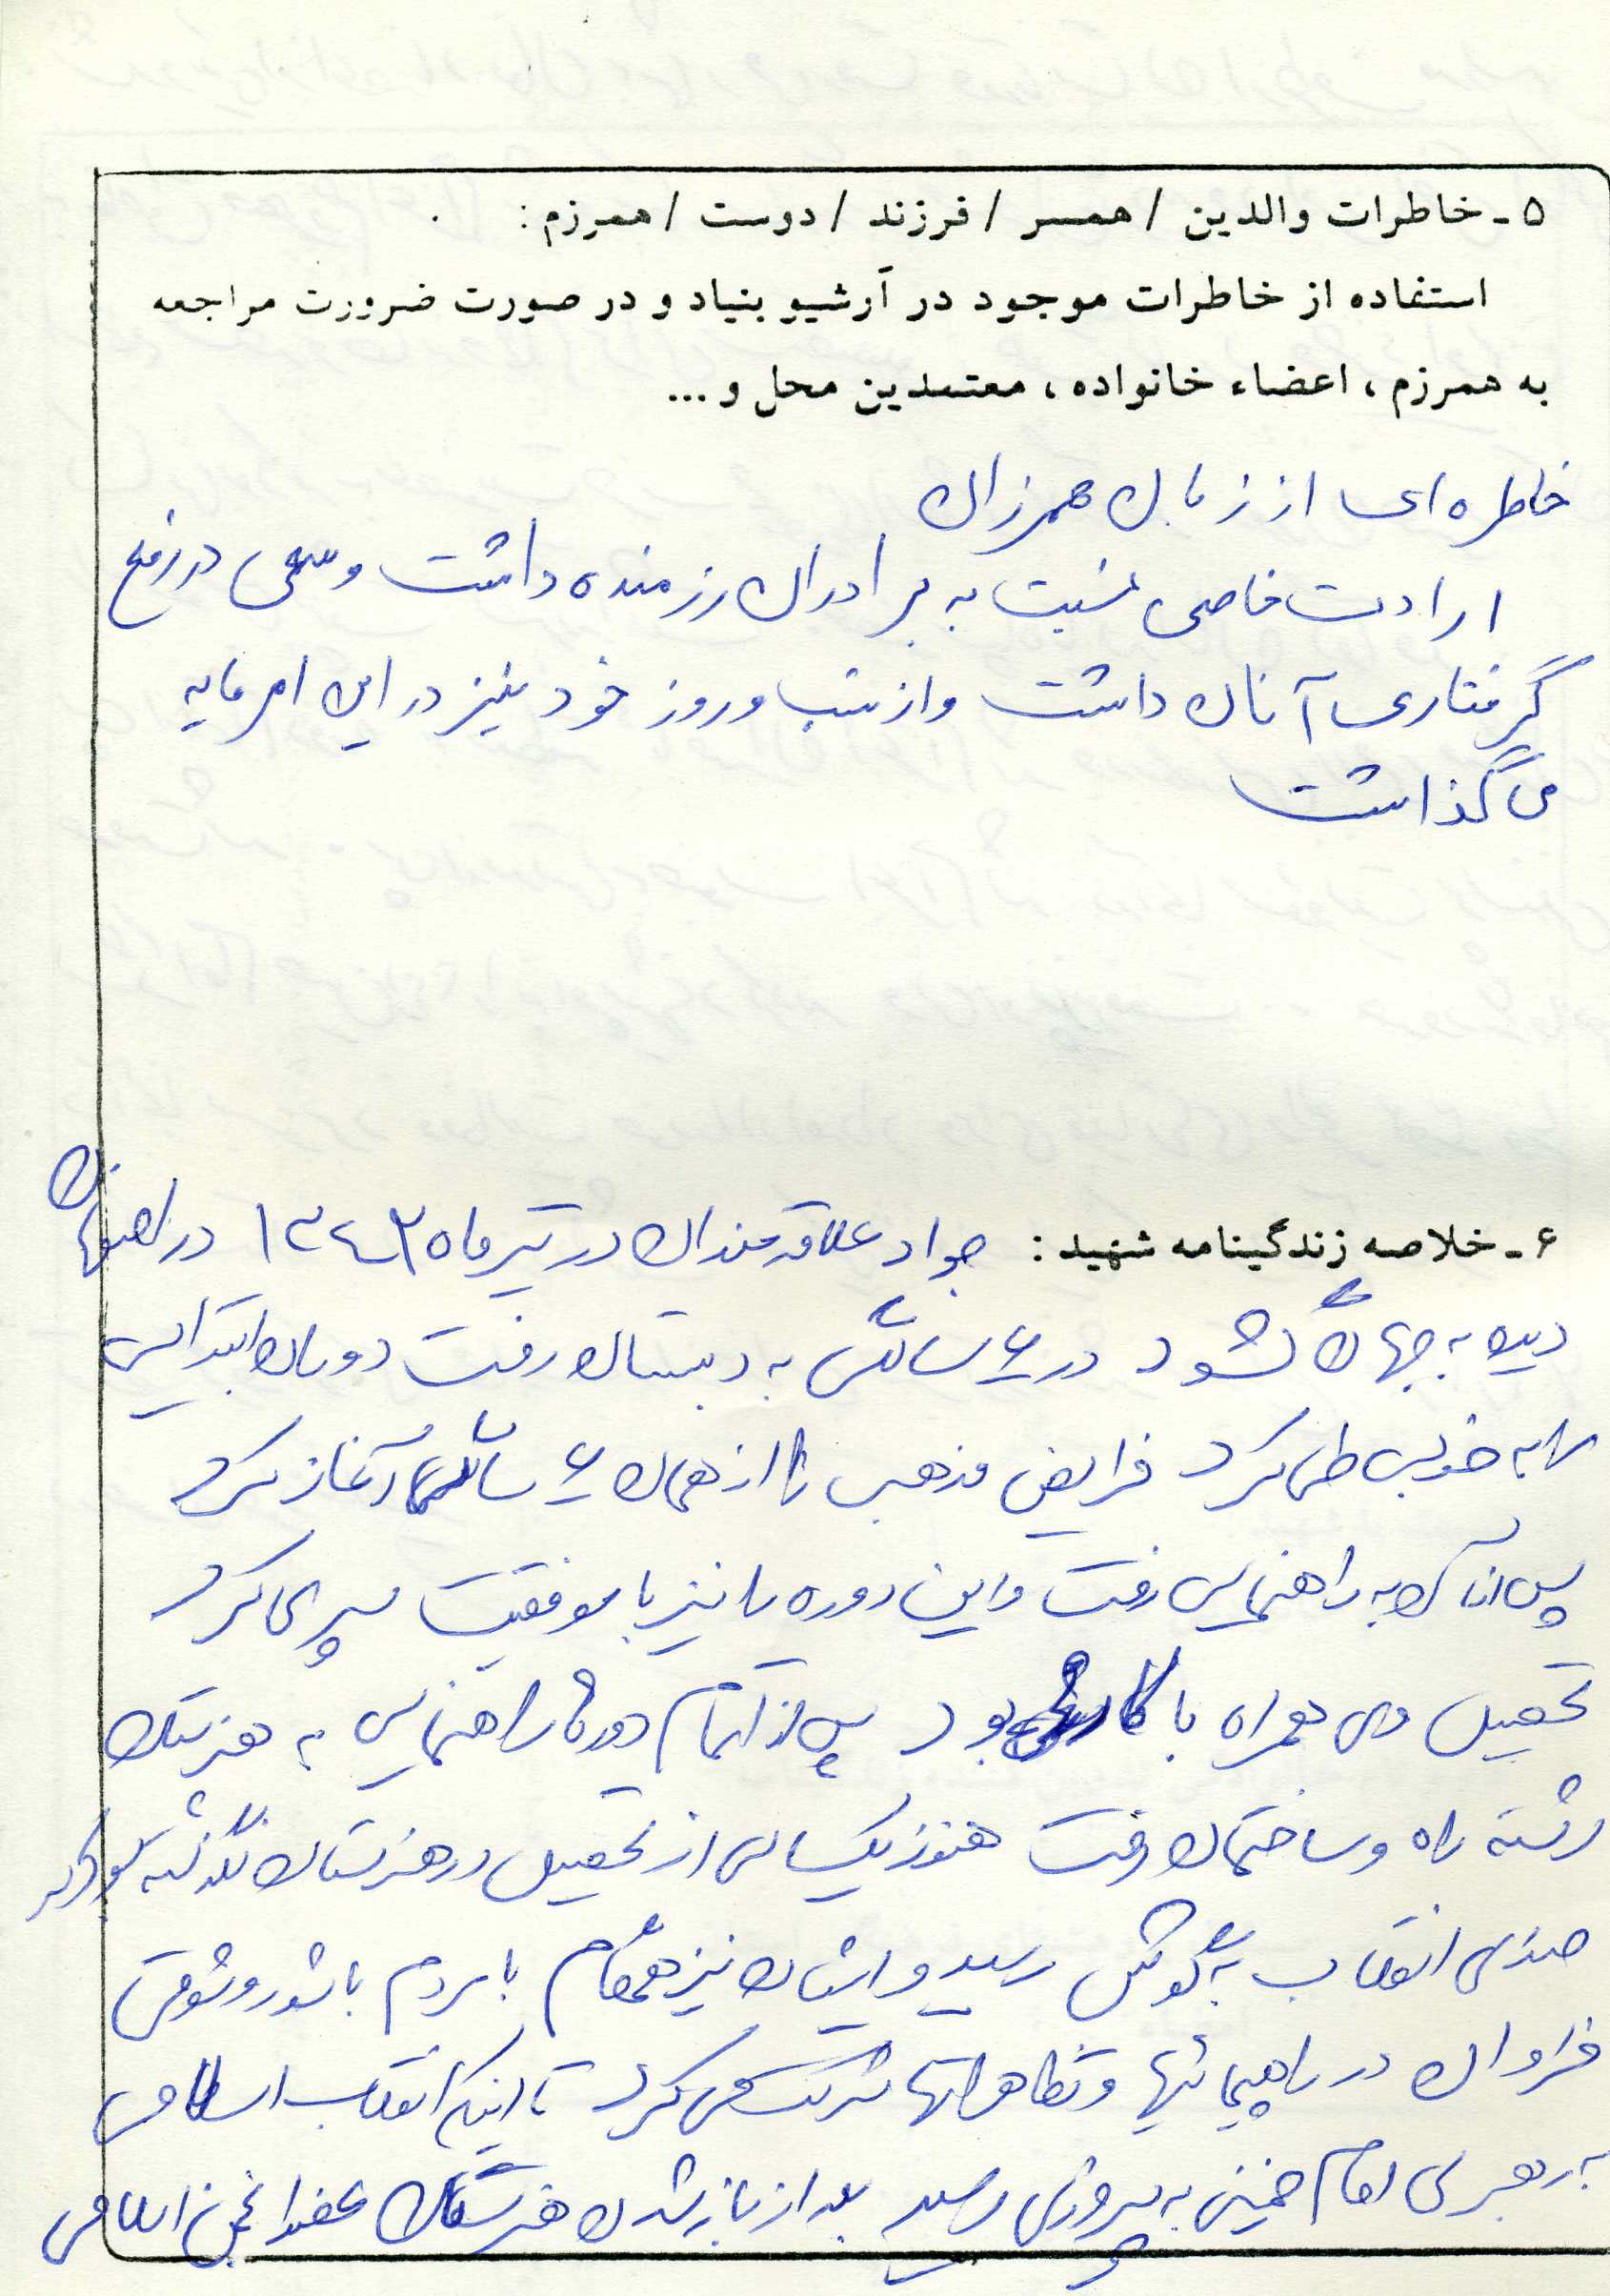 ۵ - خاطرات والدین / همسر / فرزند / دوست / همرزم :
استفاده از خاطرات موجود در آرشیو بنیاد و در صورت ضرورت مراجعه
به همرزم ، اعضاء خانواده ، معتمدین محل و ...
خاطره ای از زبان همرزان
ارادت خاصی نسبت به برادران رزمنده داشت و سعی در رفع
گرفتاری آنان داشت و از شب و روز خود نیز در این امر مایه
می گذاشت
۶ - خلاصه زندگینامه شهید : جواد علاقه مندان در تیر ماه ۱۳۴۳ در اصفهان
دیده به جهان گشود در ۶ سالگی به دبستان رفت دوران ابتدایی
را به خوبی طی کرد فرایض مذهبی را از همان ۶ سالگی آغاز کرد
پس از آن به راهنمایی رفت و این دوره را نیز با موفقیت سپری کرد
تحصیل وی همراه با کار بود پس از اتمام دوره راهنمایی به هنرستان
رشته راه و ساختمان رفت هنوز یکسالی از تحصیل در هنرستان نگذشته بود که
صدای انقلاب به گوش رسید و ایشان نیز همگام با مردم با شور و شوقی
فراوان در راهپیمائیها و تظاهراتها شرکت می کرد تا اینکه انقلاب اسلامی
به رهبری امام خمینی به پیروزی رسید بعد از باز شدن هنرستان عضو انجمن اسلامی